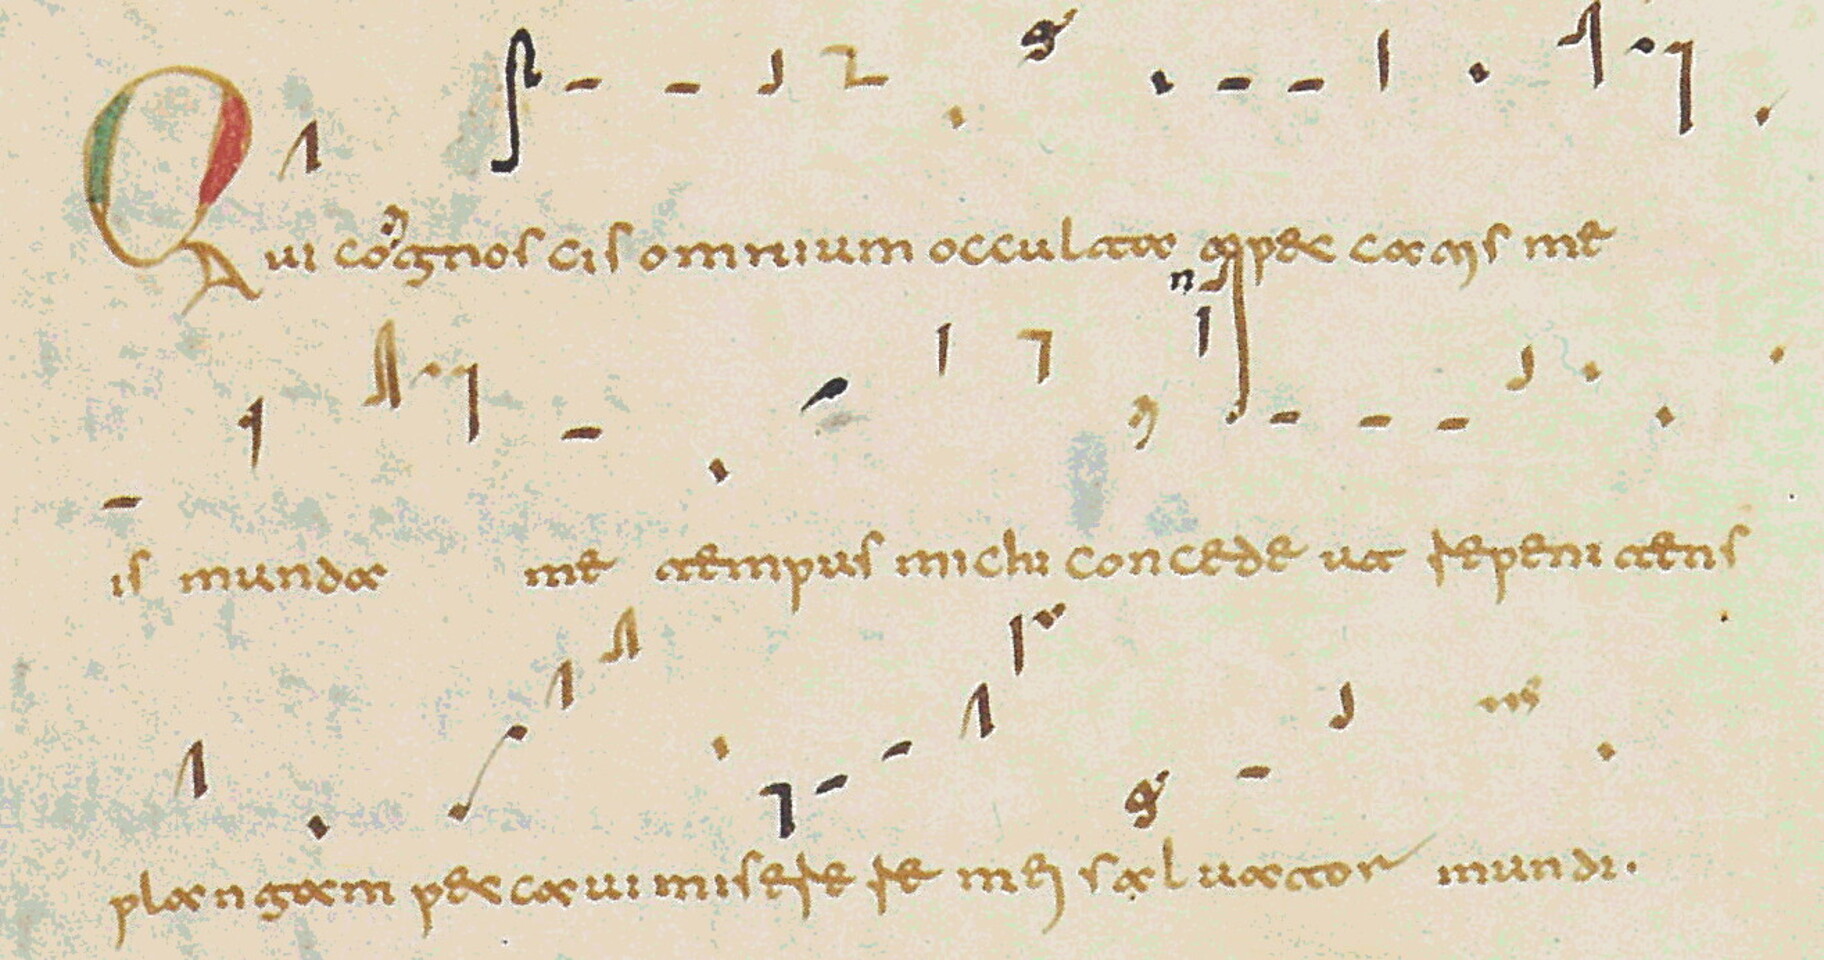 Qui cognoscis omnium occulta a peccatis me
is munda me tempus michi concede ut repenitens
plangam peccaui miserere mei saluator mundi.